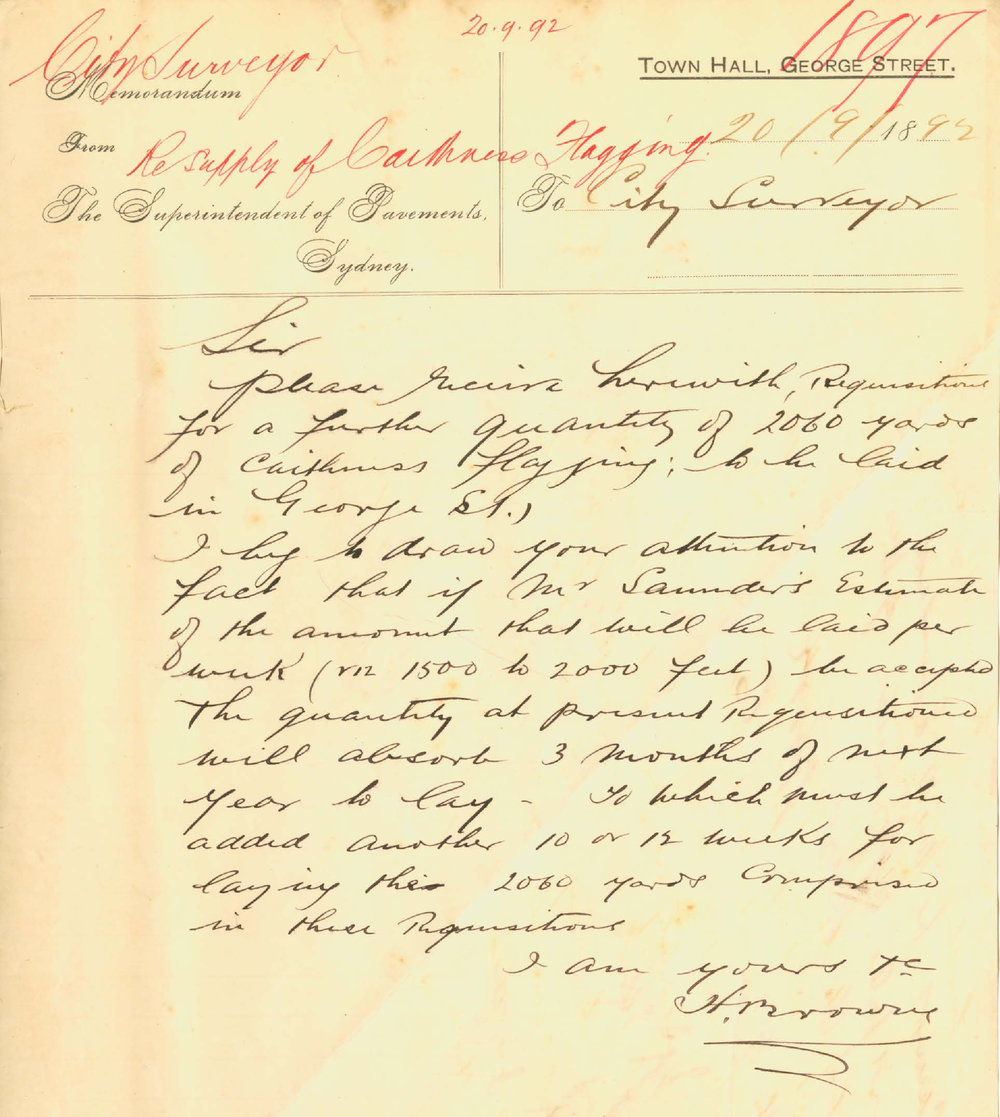 20.9.92
1897
City Surveyor
Memorandum
TOWN HALL, GEORGE STREET.
From
Re Supply of Caithness Flagging.
20/9/1892
The Superintendent of Pavements,
Sydney.
To City Surveyor
Sir
please receive herewith, Requisitions
for a further quantity of 2060 yards
of Caithness flagging; to be laid
in George St.)
I beg to draw your attention to the
fact that if Mr Saunders Estimate
of the amount that will be laid per
week (viz 1500 to 2000 feet) be accepted
the quantity at present Requisitioned
will absorb 3 months of next
year to lay - To which must be
added another 10 or 12 weeks for
laying the 2060 yards Comprised
in these Requisitions
I am yours &c
H. Browne